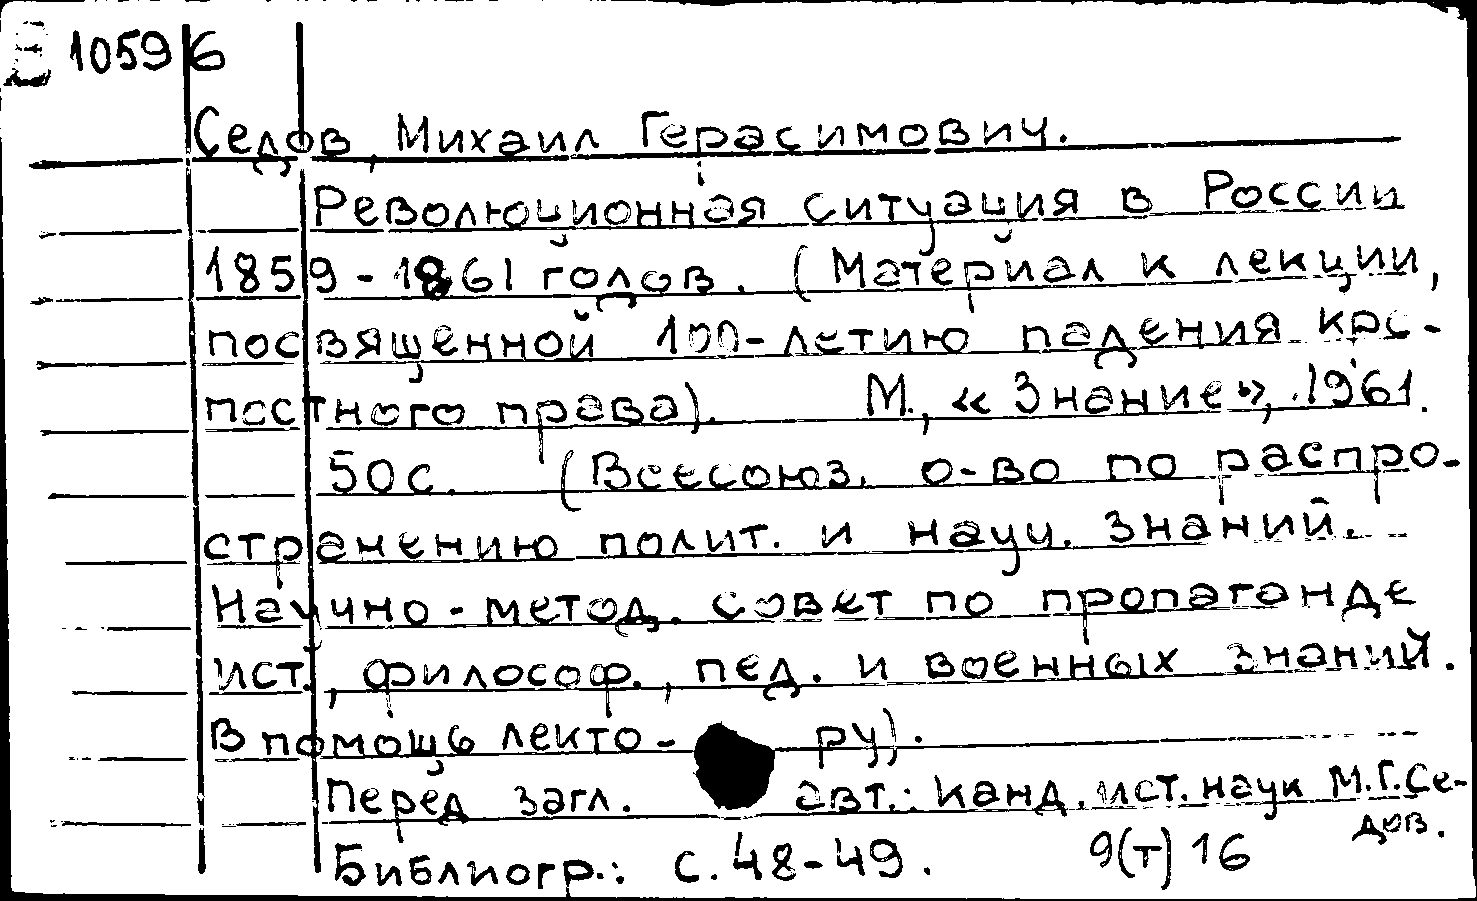 Е 10596
Седов, Михаил Герасимович.
Революционная ситуация в России
1859-1861 годов. (Материал к лекции,
посвященной 100-летию падения кре-
постного права). М., «Знание», 1961.
50с. (Всесоюз. о-во по распро-
странению полит. и науч. знаний.
Научно-метод. совет по пропаганде
ист., философ., пед. и военных знаний.
В помощь лекто- ру).
Перед загл. авт.: канд. ист. наук М.Г.Се-
дов.
Библиогр.: с. 48-49. 9(т)16